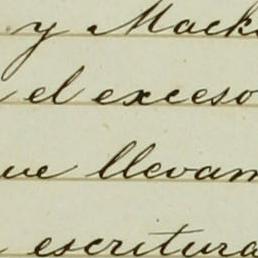 y Mack
el exceso
ue llevam
escritura